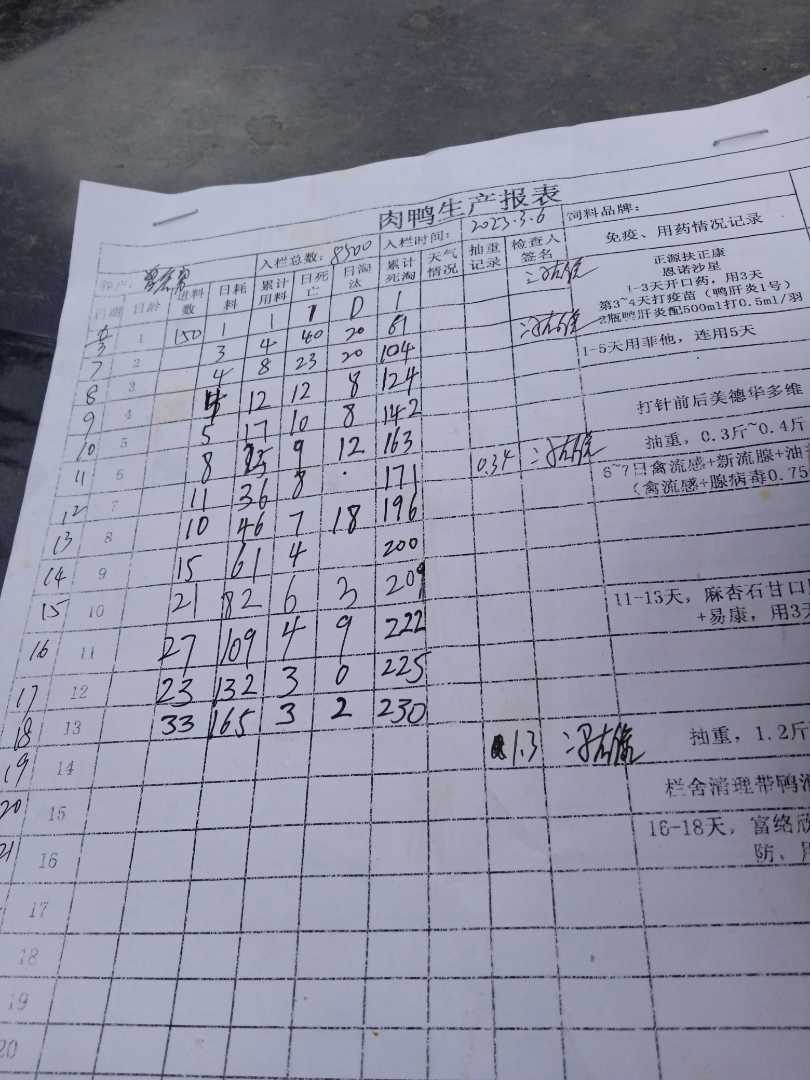 肉鸭生产报表
入栏总数: 8500 入栏时间: 2023.3.6 饲料品牌:
日期 日龄 进料数 日耗料 累计用料 日死亡 日淘汰 累计死淘 天气情况 抽重记录 检查人签名 免疫、用药情况记录
6 1 150 1 1 1 0 1
7 2 3 4 40 20 61
8 3 4 8 23 20 104
9 4 4 12 12 8 124
10 5 5 17 10 8 142
11 6 8 25 9 12 163
12 7 11 36 8 · 171 0.34
13 8 10 46 7 18 196
14 9 15 61 4 200
15 10 21 82 6 3 209
16 11 27 109 4 9 222
17 12 23 132 3 0 225
18 13 33 165 3 2 230
19 14 1.3
20 15
21 16
17
18
19
20
正源扶正康
恩诺沙星
1-3天开口药，用3天
第3~4天打疫苗（鸭肝炎1号）
2瓶鸭肝炎配500ml打0.5ml/羽
1-5天用菲他，连用5天
打针前后美德华多维
抽重，0.3斤~0.4斤
6~7日禽流感+新流腺+油
（禽流感+腺病毒0.75
11-13天，麻杏石甘口
+易康，用3天
抽重，1.2斤
栏舍清理带鸭
16-18天，富络欣
防、